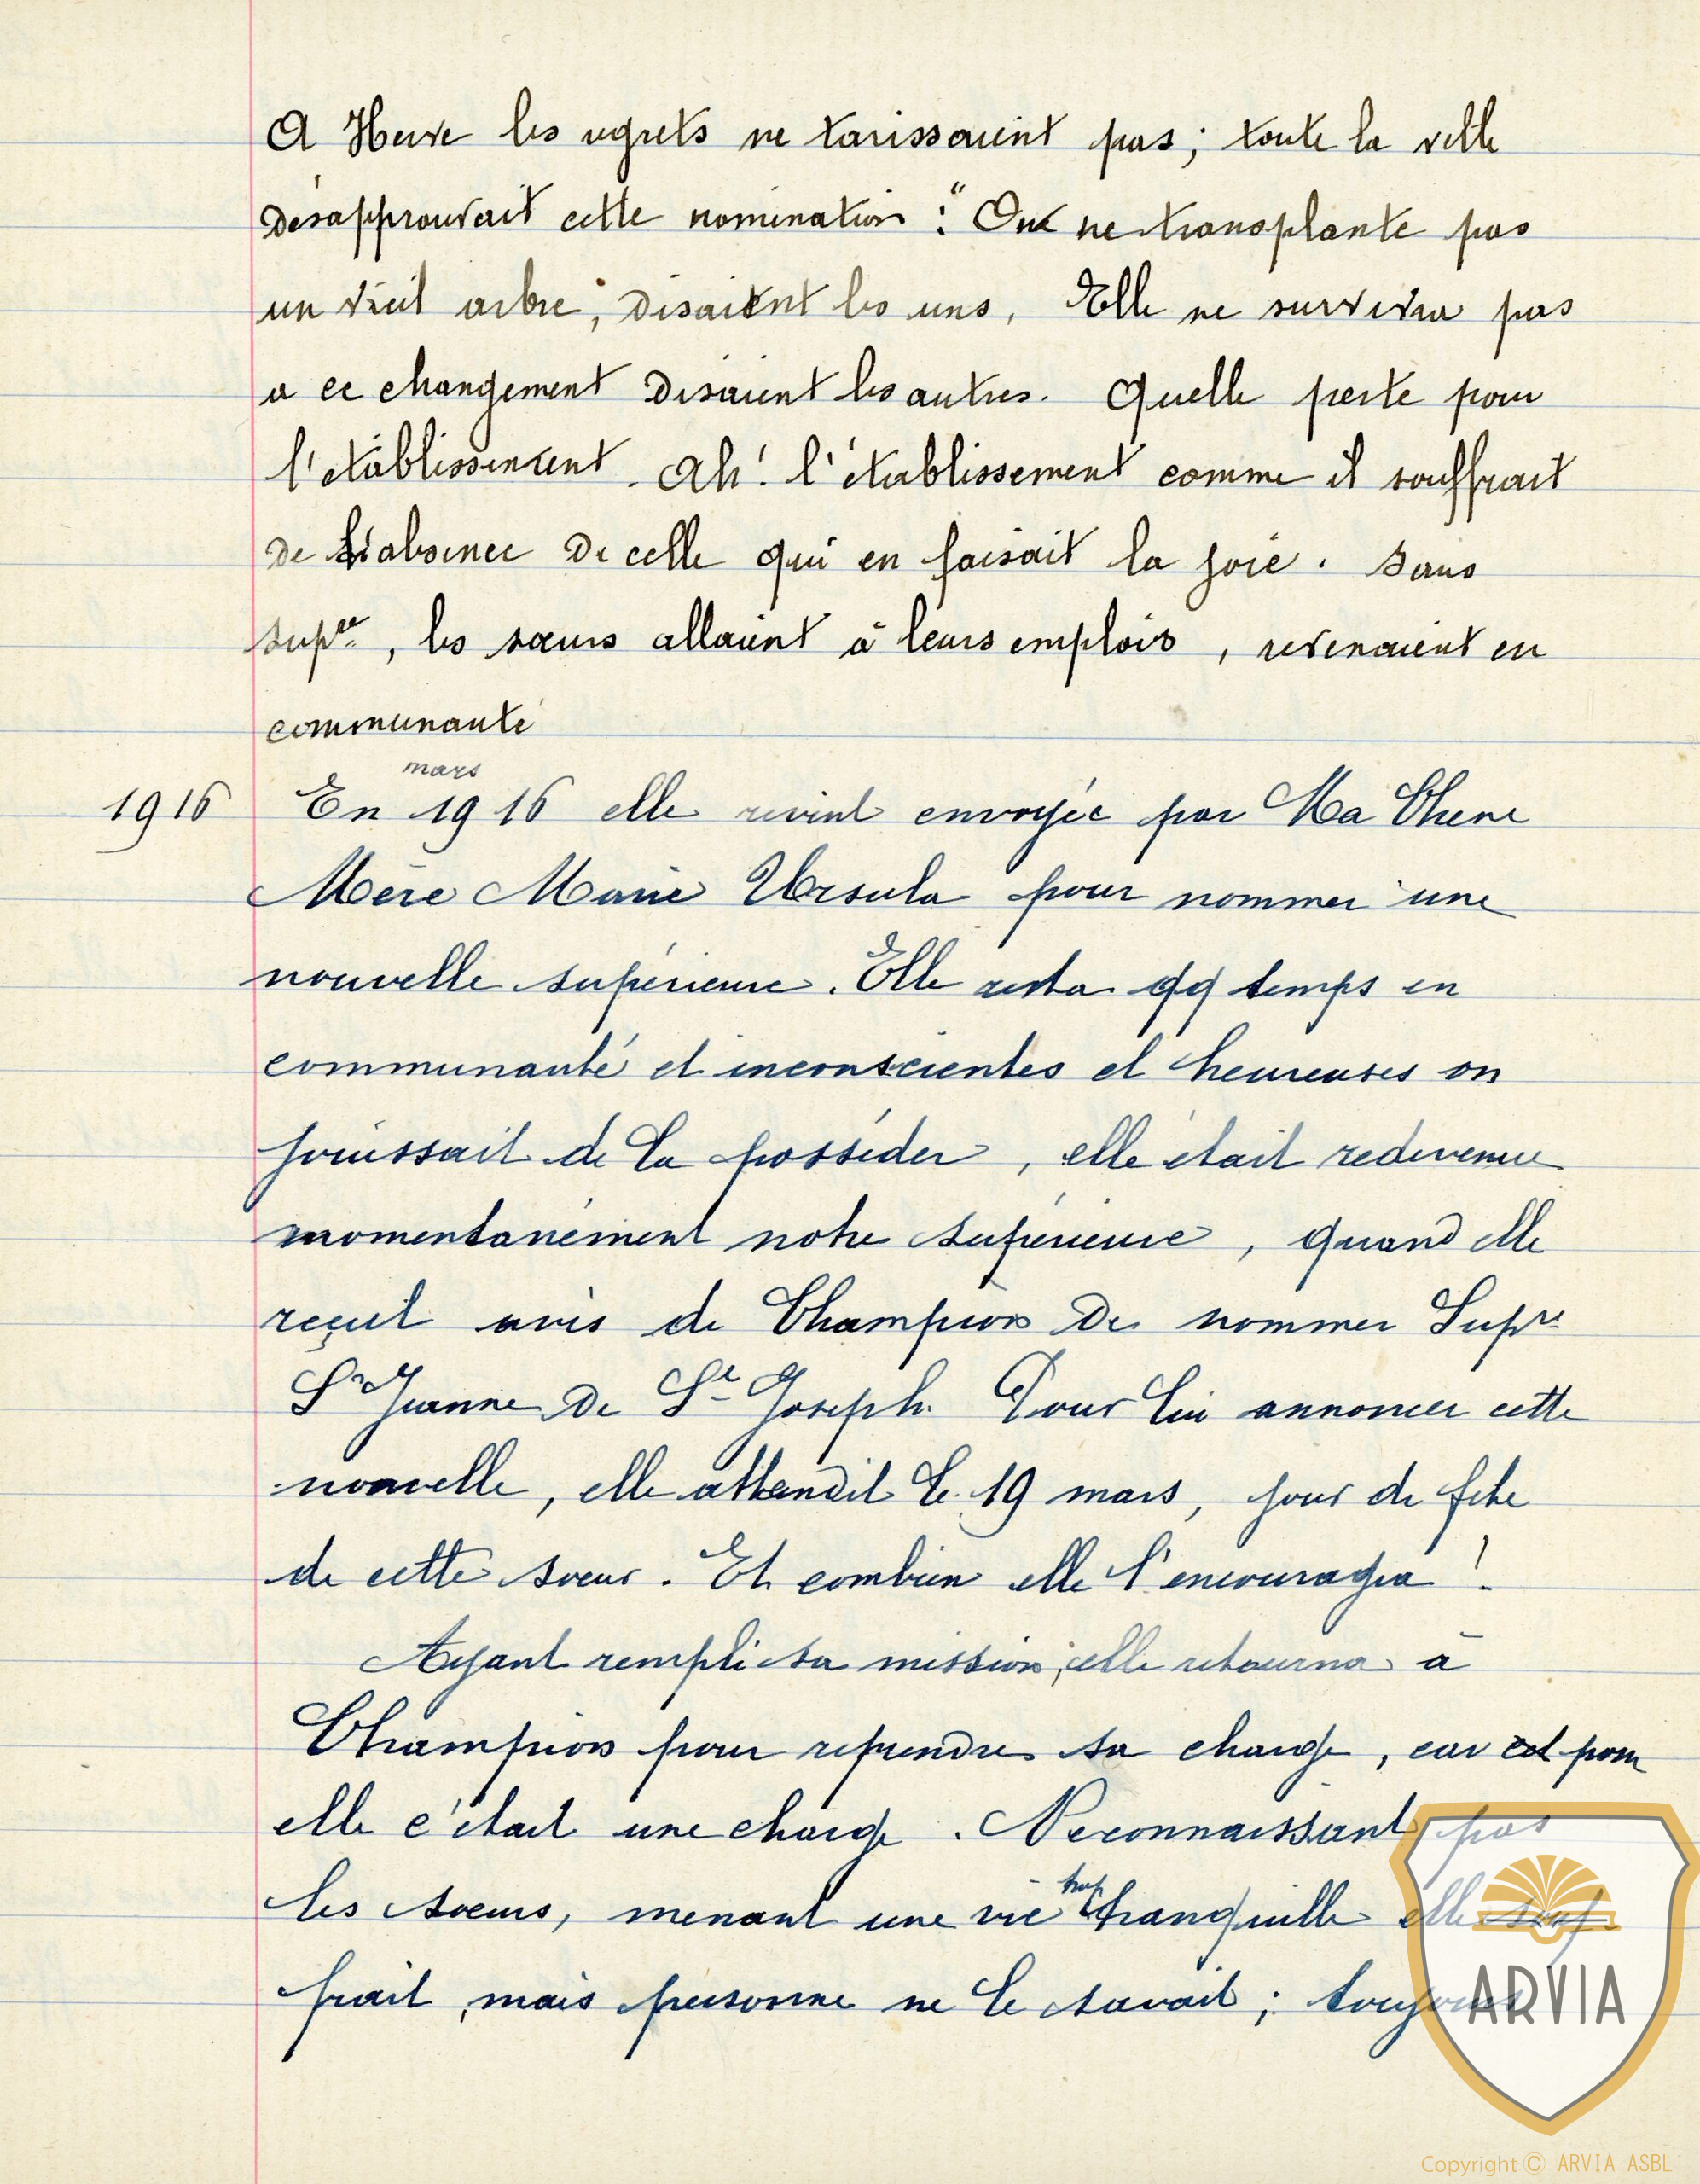 A Herve les regrets ne tarissaient pas ; toute la ville
désapprouvait cette nomination : "On ne transplante pas
un vieil arbre", disaient les uns, Elle ne survivra pas
a ce changement disaient les autres. Quelle perte pour
l'établissement. Ah ! l'établissement comme il souffrait
de l'absence de celle qui en faisait la joie. Sans
Supre, les sœurs allaient à leurs emplois, revenaient en
communauté
mars
1916 En 1916 elle revint envoyée par Ma Chère
Mère Marie Ursula pour nommer une
nouvelle supérieure. Elle resta qq temps en
communauté et inconscientes et heureuses on
jouissait de la posséder, elle était redevenue
momentanément notre supérieure, quand elle
reçut avis de Champion de nommer Supre
Sr Jeanne de St Joseph. Pour lui annoncer cette
nouvelle, elle attendit le 19 mars, jour de fête
de cette sœur. Et combien elle l'encouragea !
Ayant rempli sa mission, elle retourna à
Champion pour reprendre sa charge, car pour
elle c'était une charge. Ne connaissant pas
trop
les sœurs, menant une vie tranquille elle souf
frait, mais personne ne le savait ; toujours
ARVIA
Copyright © ARVIA ASBL